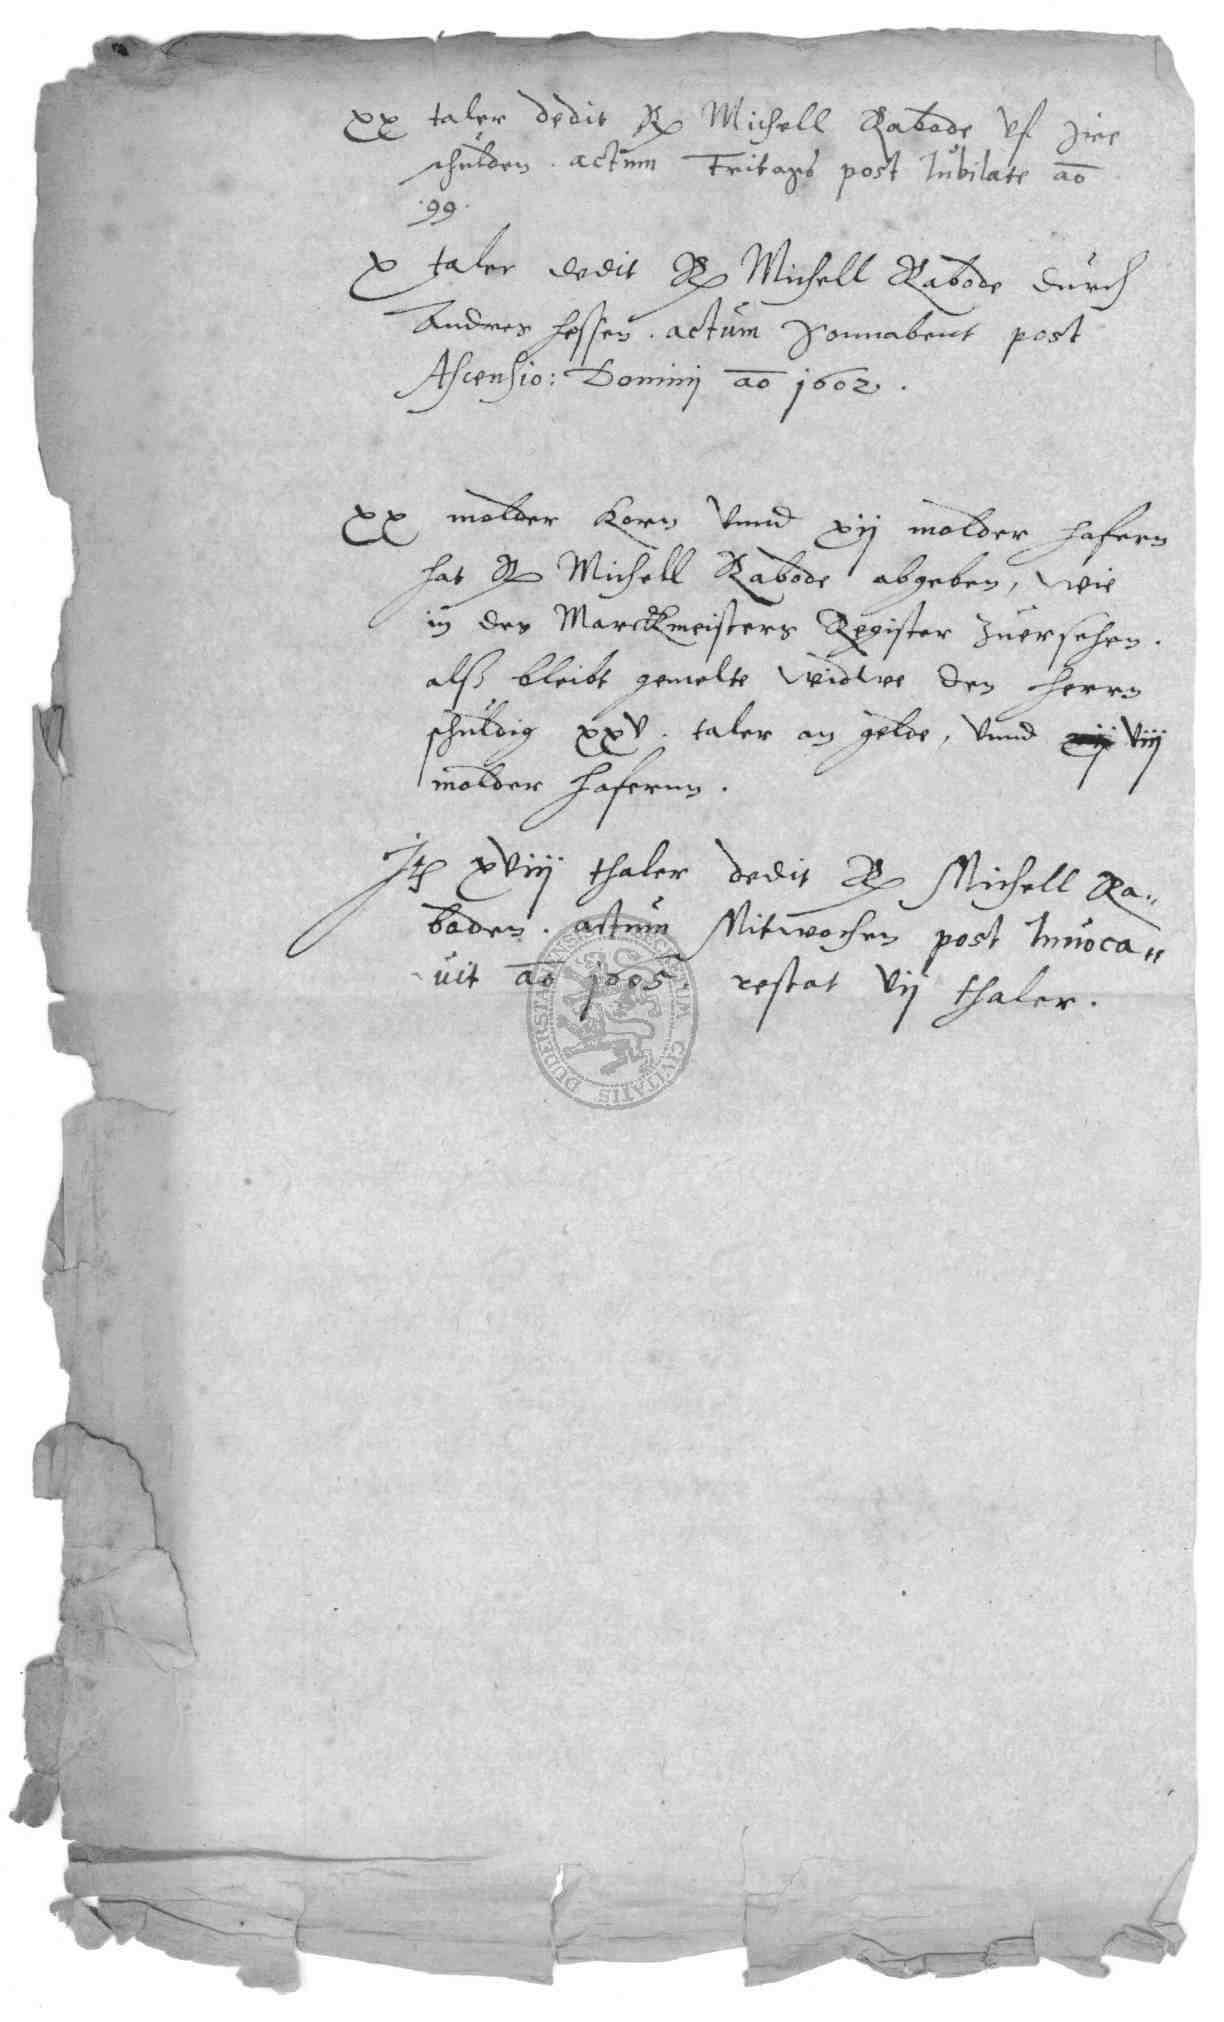 xx taler dedit R Michell Rabode vf ire
schulden . actum Fritags post Iubilate ao
.99.
x taler dedit R Michell Rabode durch
Andres Hessen . actum Sonnabent post
Ascensio: Domini ao 1602.
xx molder Korn vnnd xij molder hafern
hat R Michell Rabode abgeben, wie
in des Marckmeisters Register Zuersehen.
alß bleibt gemelte widwe den herrn
schuldig xxv . taler an gelde, vnnd viij
molder hafernn .
It xviij thaler dedit R Michell Ra„
boden . actum Mitwochen post Inuoca„
uit ao 1605. restat vij thaler.
DUDERSTA CIVITATIS